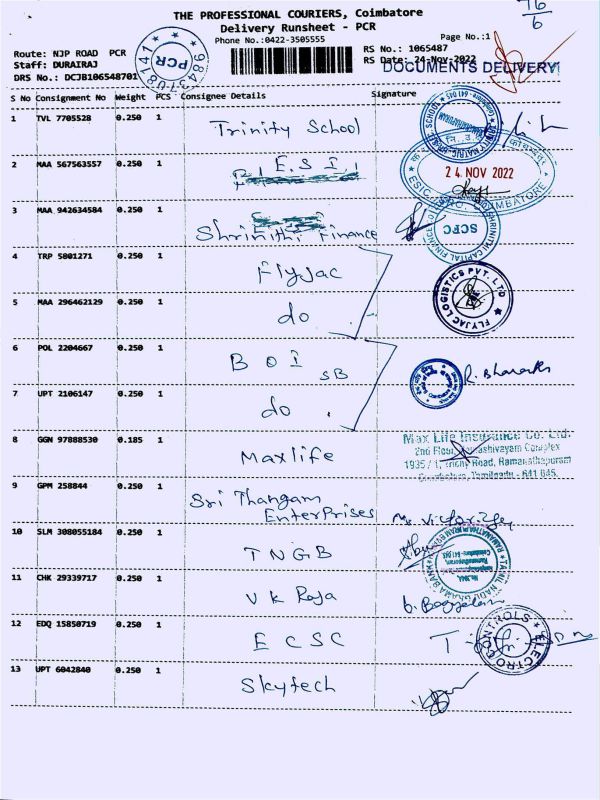 THE PROFESSIONAL COURIERS, Coimbatore
Delivery Runsheet - PCR
Phone No.:0422-3505555
Page No.:1
76
6
Route: NJP ROAD PCR
Staff: DURAIRAJ
DRS No.: DCJB106548701
98437-08141
PCR
RS No.: 1065487
RS Date: 24-Nov-2022
DOCUMENTS DELIVERY
S No Consignment No Weight PCS Consignee Details Signature
1 TVL 7705528 0.250 1 Trinity School
2 MAA 567563557 0.250 1 E.S.I.
24 NOV 2022
3 MAA 942634584 0.250 1 Shrinithi Finance
SCFC
4 TRP 5801271 0.250 1 Flyjac
FLYJAC LOGISTICS PVT. LTD
5 MAA 296462129 0.250 1 do
6 POL 2204667 0.250 1 BOI SB
7 UPT 2106147 0.250 1 do
8 GGN 97888530 0.185 1 Maxlife
Max Life Insurance Co. Ltd.
2nd Floor, Complex
1935 / 1, Trichy Road, Ramanathapuram
Coimbatore, Tamilnadu - 641 045.
9 GPM 258844 0.250 1 Sri Thangam
Enterprises
10 SLM 308055184 0.250 1 TNGB
TAMIL NADU GRAMA BANK
11 CHK 29339717 0.250 1 V K Raja
12 EDQ 15850719 0.250 1 ECSC
ELECTROCONTROLS
13 UPT 6042840 0.250 1 Skytech